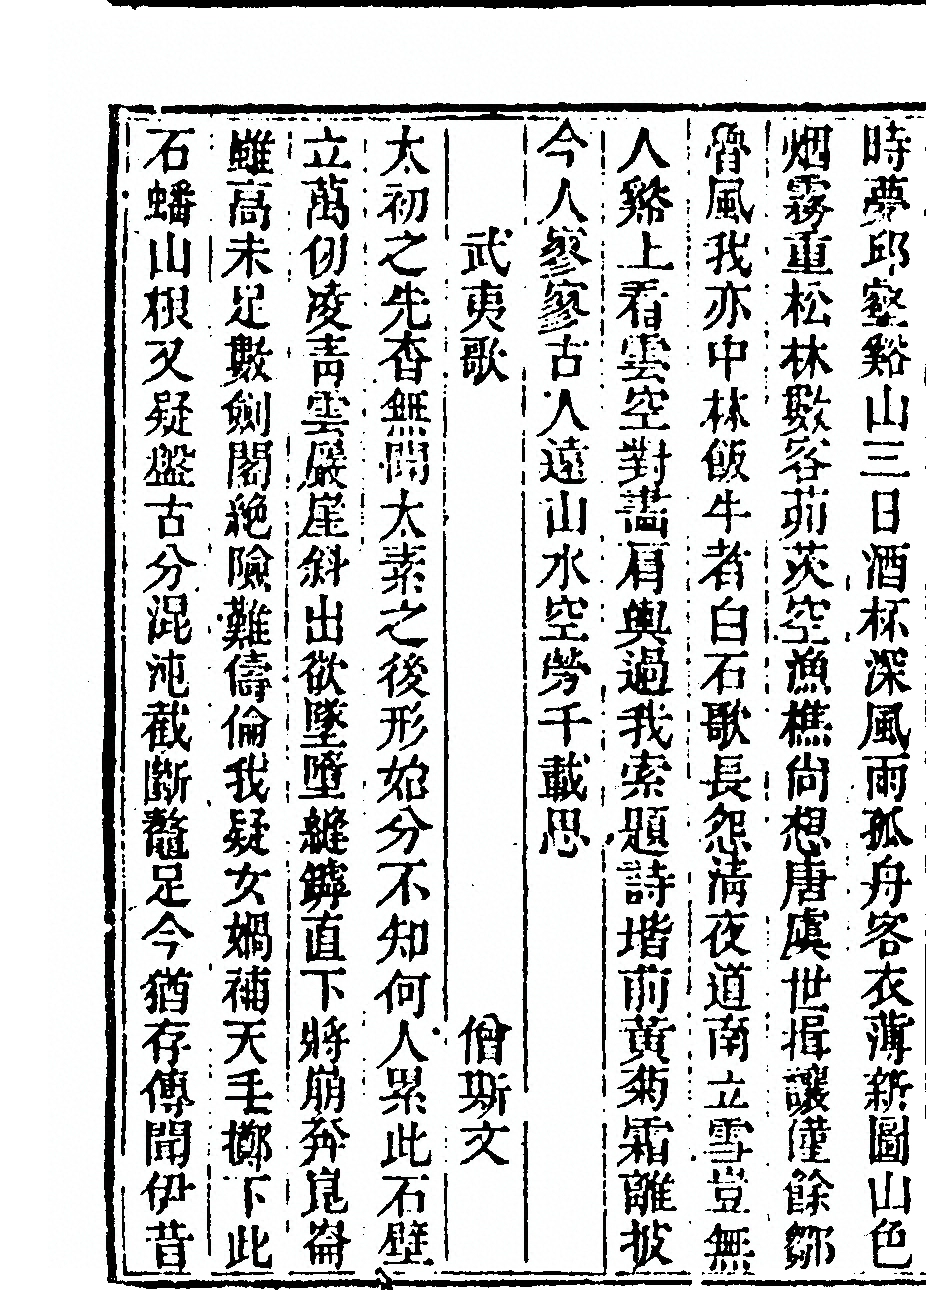 時夢邱壑谿山三日酒杯深風雨孤舟客衣薄新圖山色
烟霧重松林數客茆茨空漁樵尚想唐虞世揖讓僅餘鄒
魯風我亦中林飯牛者白石歌長怨清夜道南立雪豈無
人谿上看雲空對畫肩輿過我索題詩堦前黃菊霜離披
今人寥寥古人遠山水空勞千載思
武夷歌 僧斯文
太初之先杳無聞太素之後形始分不知何人累此石壁
立萬仞凌青雲巖崖斜出欲墜墮縫罅直下將崩奔崑崙
雖高未足數劍閣絶險難儔倫我疑女媧補天手擲下此
石蟠山根又疑盤古分混沌截斷鼇足今猶存傳聞伊昔